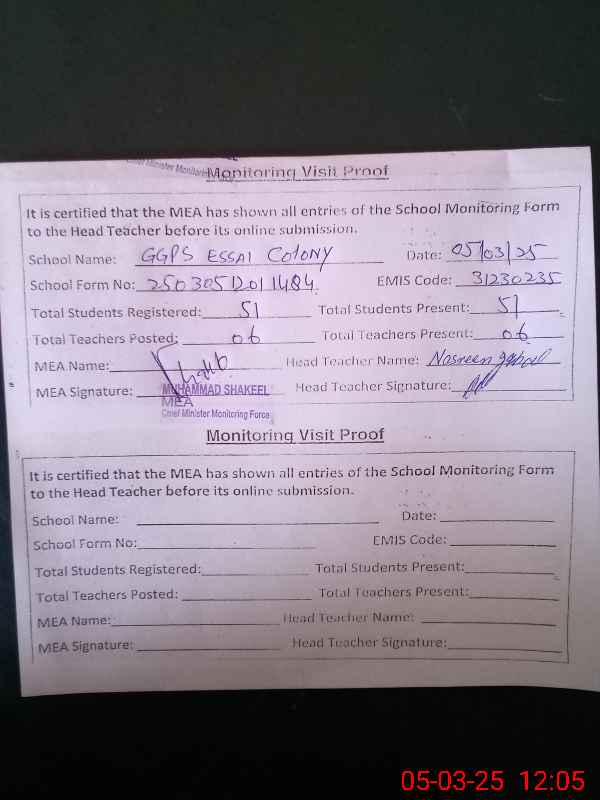 Chief Minister Monitoring
Monitoring Visit Proof
It is certified that the MEA has shown all entries of the School Monitoring Form
to the Head Teacher before its online submission.
School Name: GGPS ESSAI COLONY Date: 05/03/25
School Form No: 25030512011484 EMIS Code: 31230235
Total Students Registered: 51 Total Students Present: 51
Total Teachers Posted: 06 Total Teachers Present: 06
MEA Name: Head Teacher Name: Nasreen
MEA Signature: MUHAMMAD SHAKEEL Head Teacher Signature:
MEA
Chief Minister Monitoring Force
Monitoring Visit Proof
It is certified that the MEA has shown all entries of the School Monitoring Form
to the Head Teacher before its online submission.
School Name: Date:
School Form No: EMIS Code:
Total Students Registered: Total Students Present:
Total Teachers Posted: Total Teachers Present:
MEA Name: Head Teacher Name:
MEA Signature: Head Teacher Signature:
05-03-25 12:05